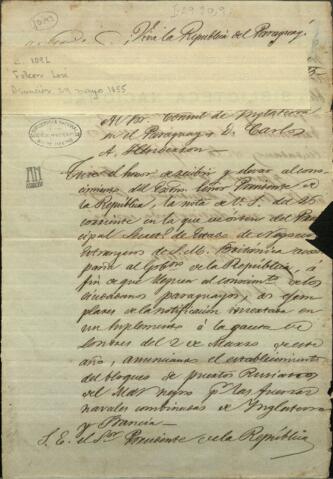 I-29.20.9
¡Viva la República del Paraguay!
C. 1092
Falcon José
Asunción 29 mayo 1855
Al Sor. Consul de Inglaterra
en el Paraguay D. Carlos
A. Henderson
Tuve el honor de recibir y elevar al cono-
cimiento del Exmo. Señor Presidente de
la República, la nota de V. S. del 26
corriente en la que de orden del Prin-
cipal Secret. de Estado de Negocios
Extrangeros de S. M. Británica acom-
paña al Gobno. de la República, á
fin de que llegue al conocimto. de los
ciudadanos paraguayos, dos ejem-
plares de la notificación insertada en
un Suplemento á la gaceta de
Londres del 2 de Marzo de este
año, anunciando el establecimiento
del bloqueo de puertos Rusianos
del Mar negro pr. las fuerzas
navales combinadas de Inglaterra
y Francia.
S. E. el Sor. Presidente de la República